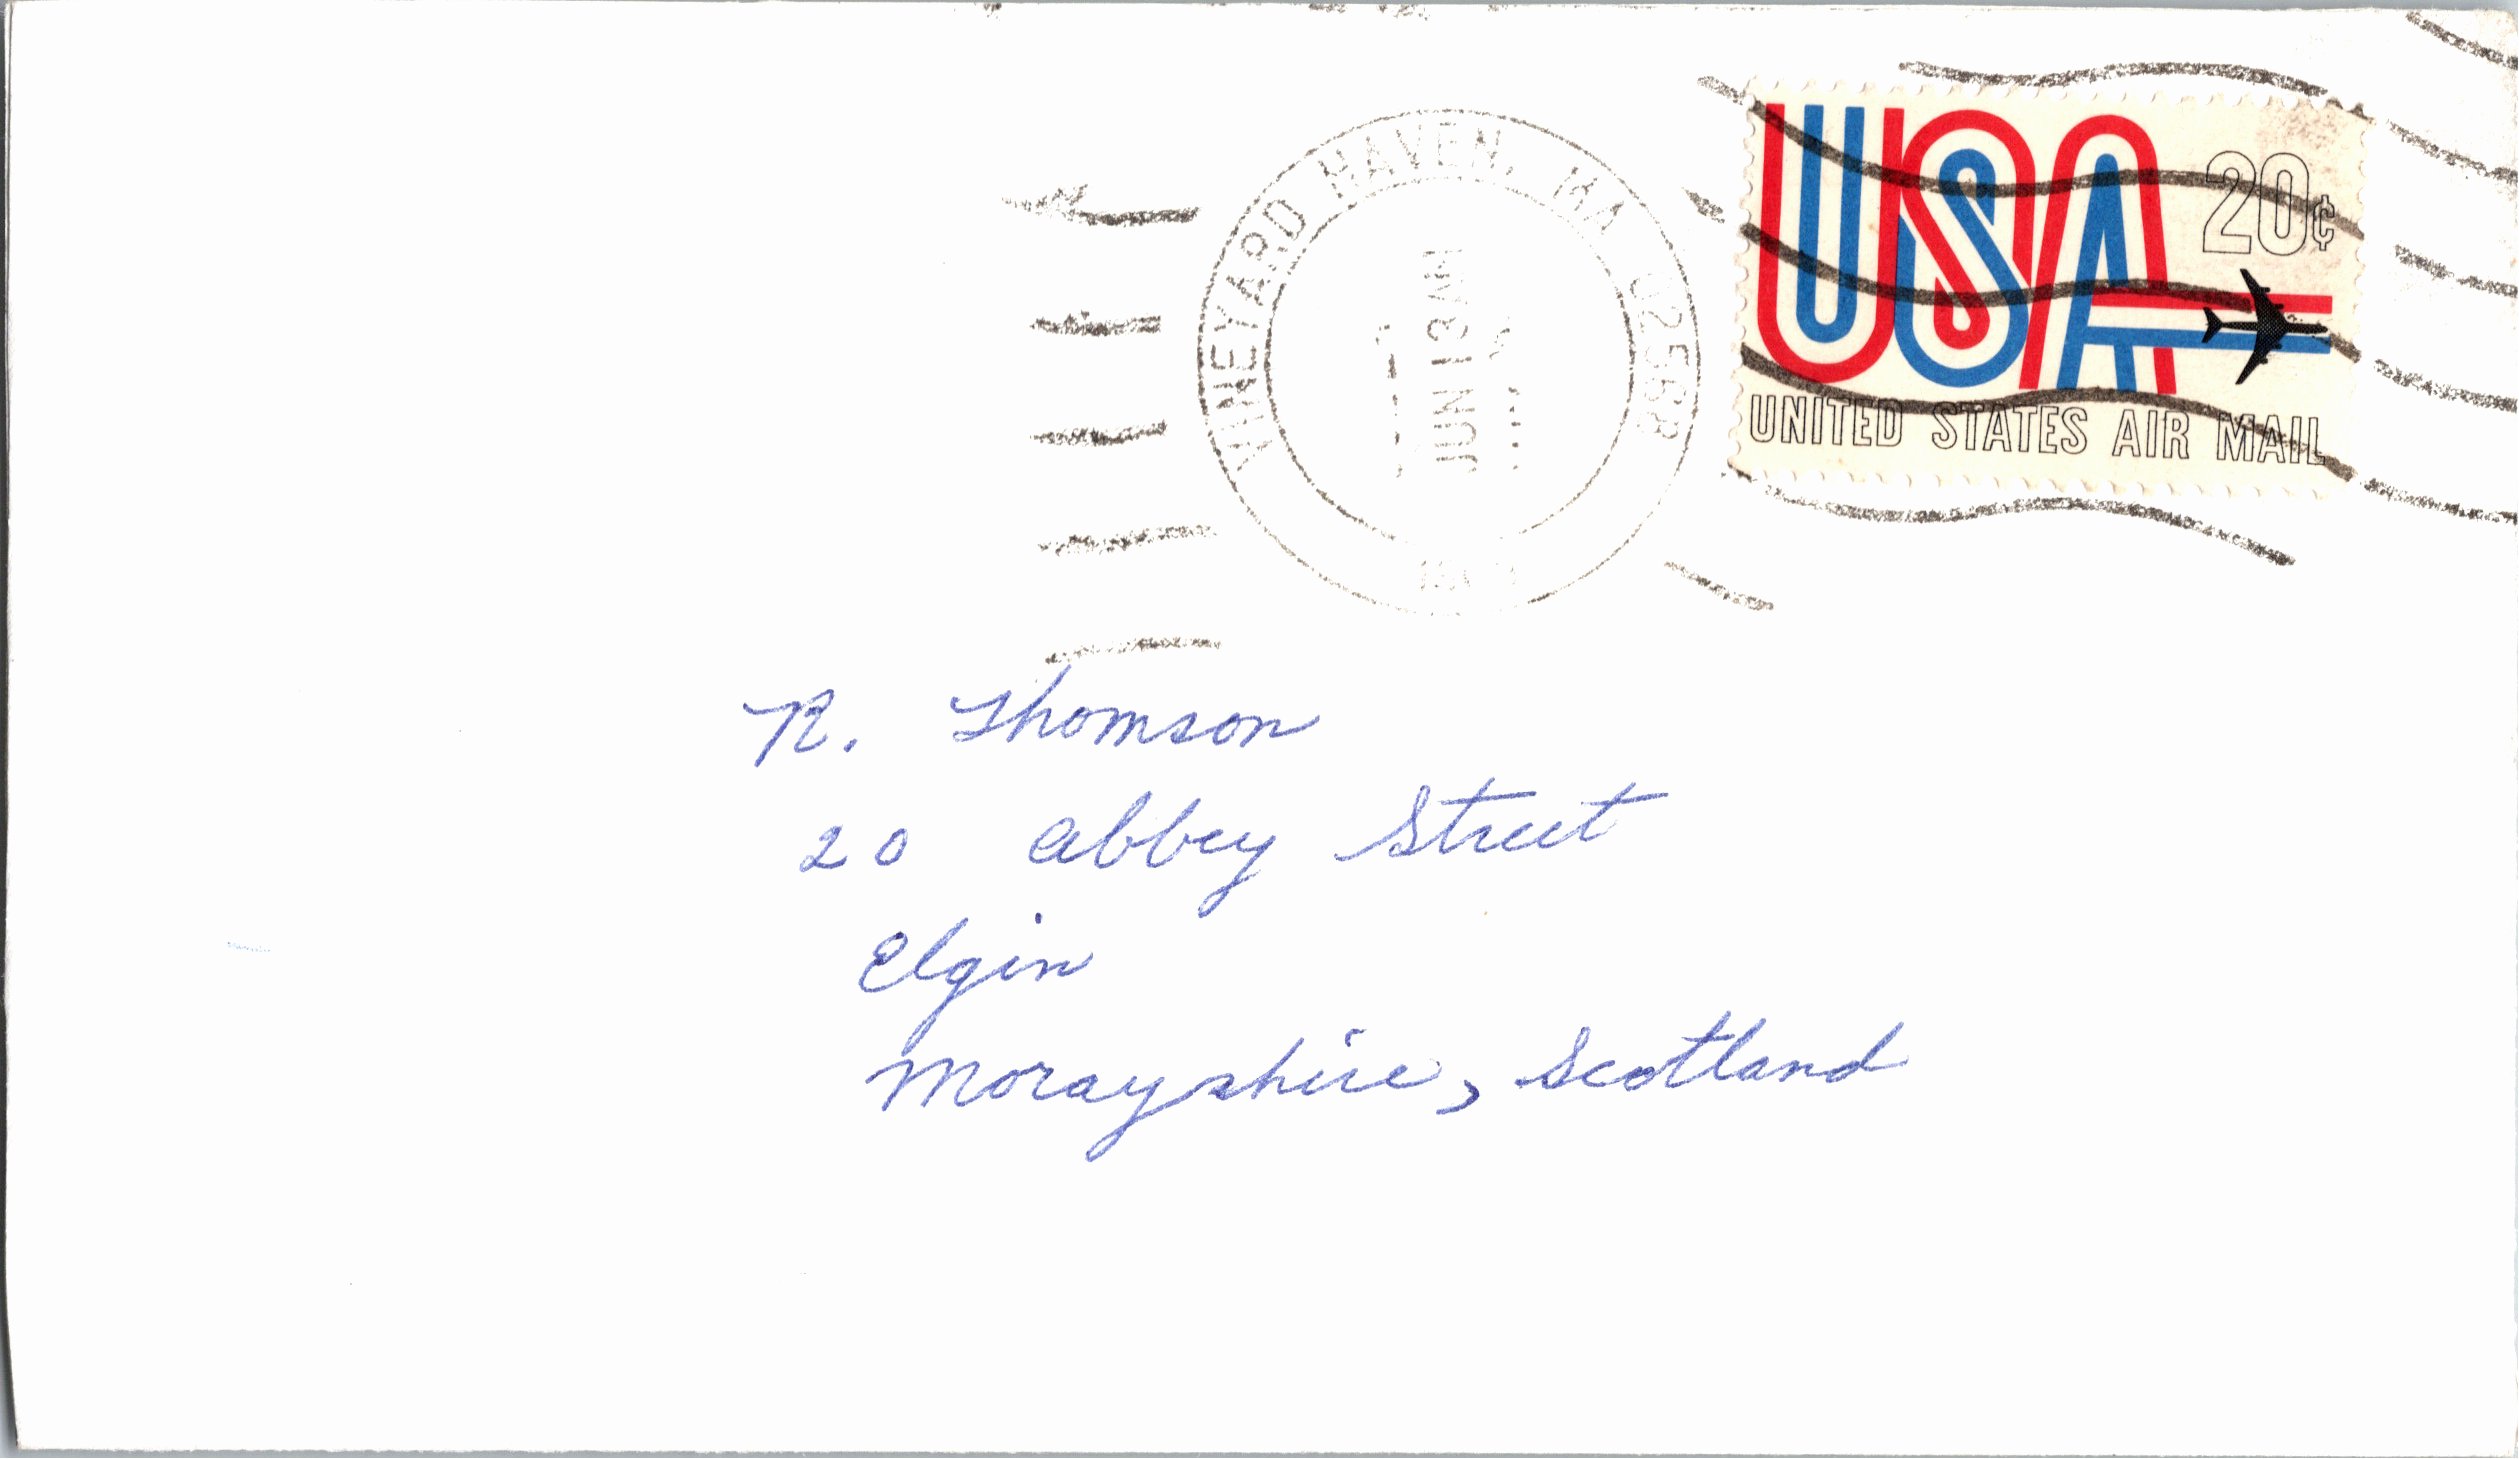 VINEYARD HAVEN, MA 02568
JUN 13 AM
USA 20¢
UNITED STATES AIR MAIL
R. Thomson
20 Abbey Street
Elgin
Morayshire, Scotland